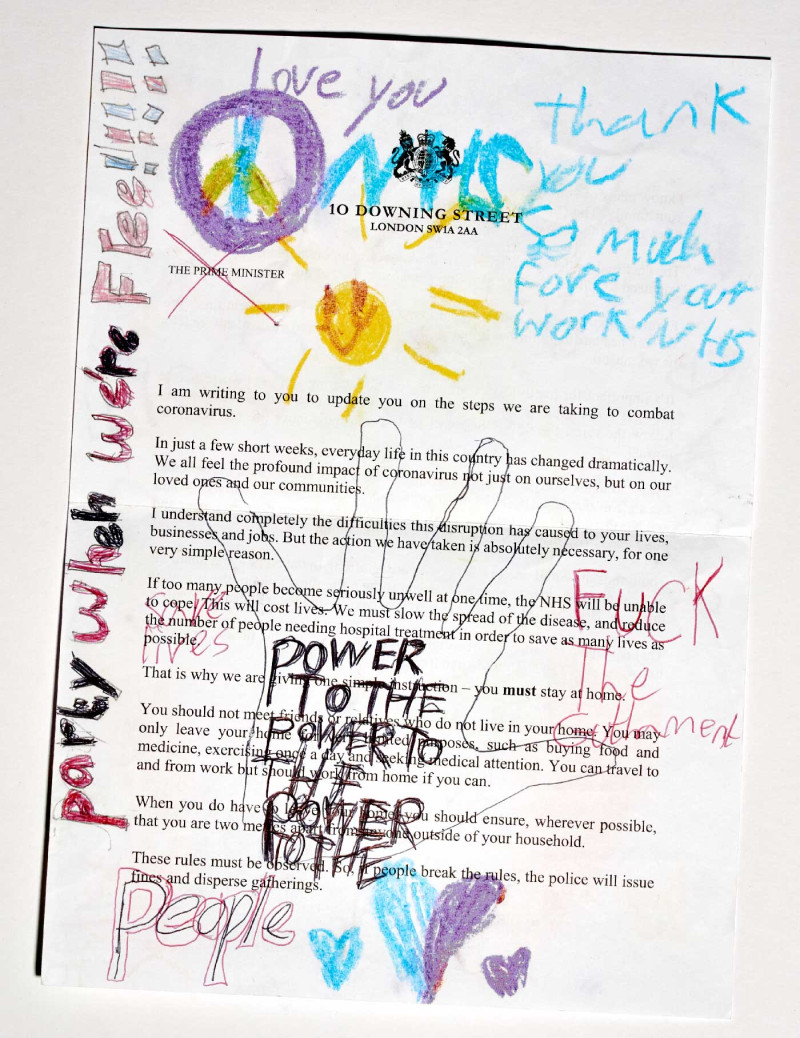 love you
thank
you
so much
fore your
work NHS
NHS
10 DOWNING STREET
LONDON SW1A 2AA
THE PRIME MINISTER
party when we're Free!!!!!
I am writing to you to update you on the steps we are taking to combat
coronavirus.
In just a few short weeks, everyday life in this country has changed dramatically.
We all feel the profound impact of coronavirus not just on ourselves, but on our
loved ones and our communities.
I understand completely the difficulties this disruption has caused to your lives,
businesses and jobs. But the action we have taken is absolutely necessary, for one
very simple reason.
If too many people become seriously unwell at one time, the NHS will be unable
to cope. This will cost lives. We must slow the spread of the disease, and reduce
the number of people needing hospital treatment in order to save as many lives as
possible.
That is why we are giving one simple instruction – you must stay at home.
You should not meet friends or relatives who do not live in your home. You may
only leave your home for limited purposes, such as buying food and
medicine, exercising once a day and seeking medical attention. You can travel to
and from work but should work from home if you can.
When you do have to leave your home, you should ensure, wherever possible,
that you are two metres apart from anyone outside of your household.
These rules must be observed. So, if people break the rules, the police will issue
fines and disperse gatherings.
save
lives
FUCK
The
POWER
TO THE
POWER TO
THE
POWER
TO THE
People